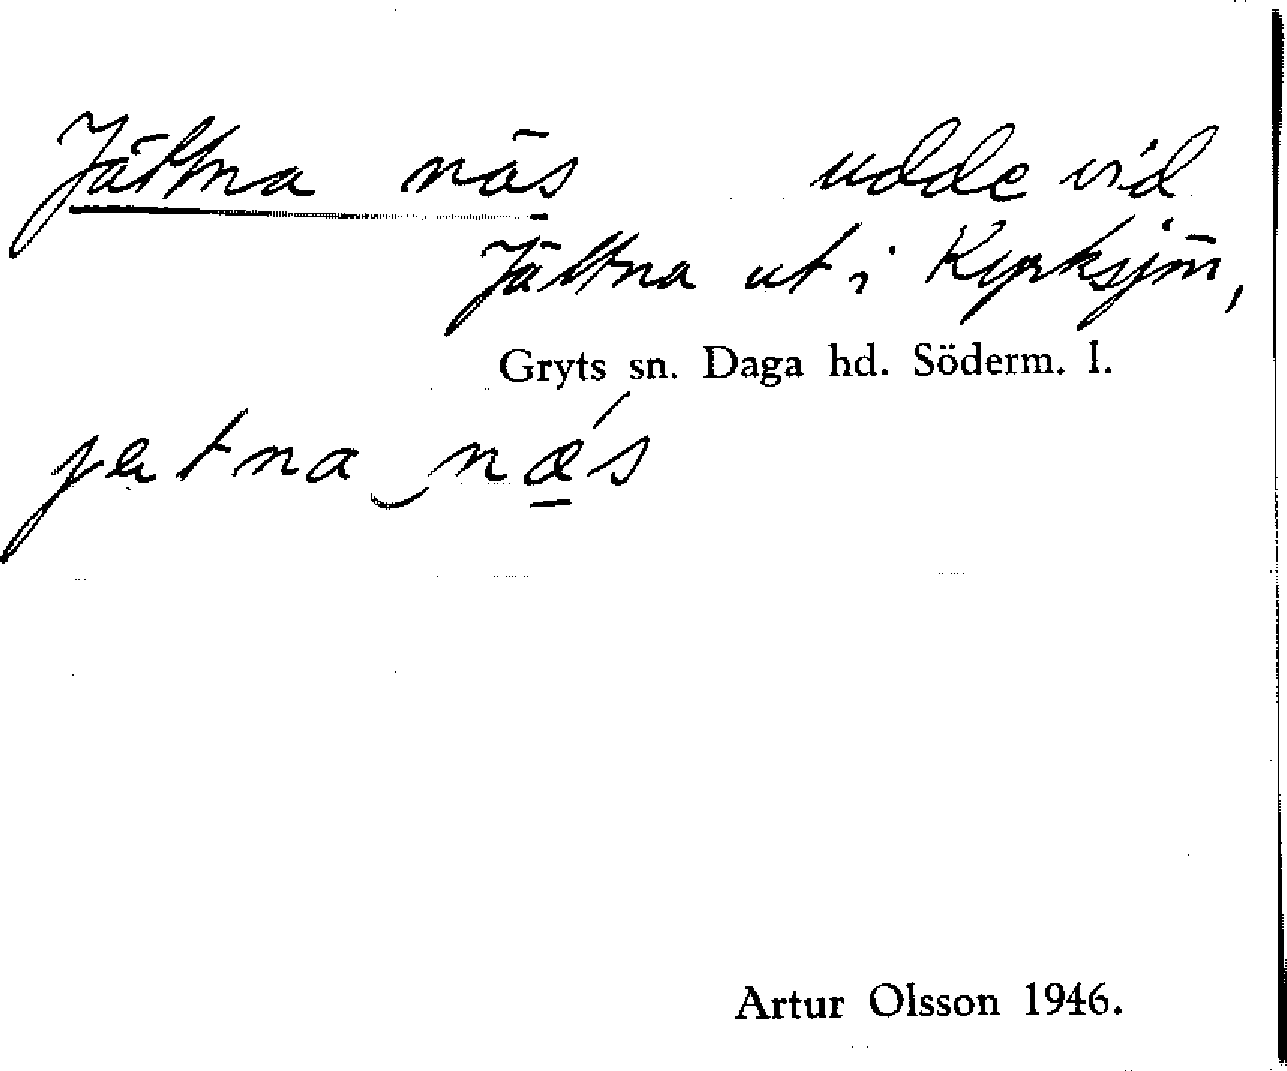 Jättna näs udde vid
Jättna ut i Kyrksjön,
Gryts sn. Daga hd. Söderm. l.
jætna‿nǽ̲s
Artur Olsson 1946.